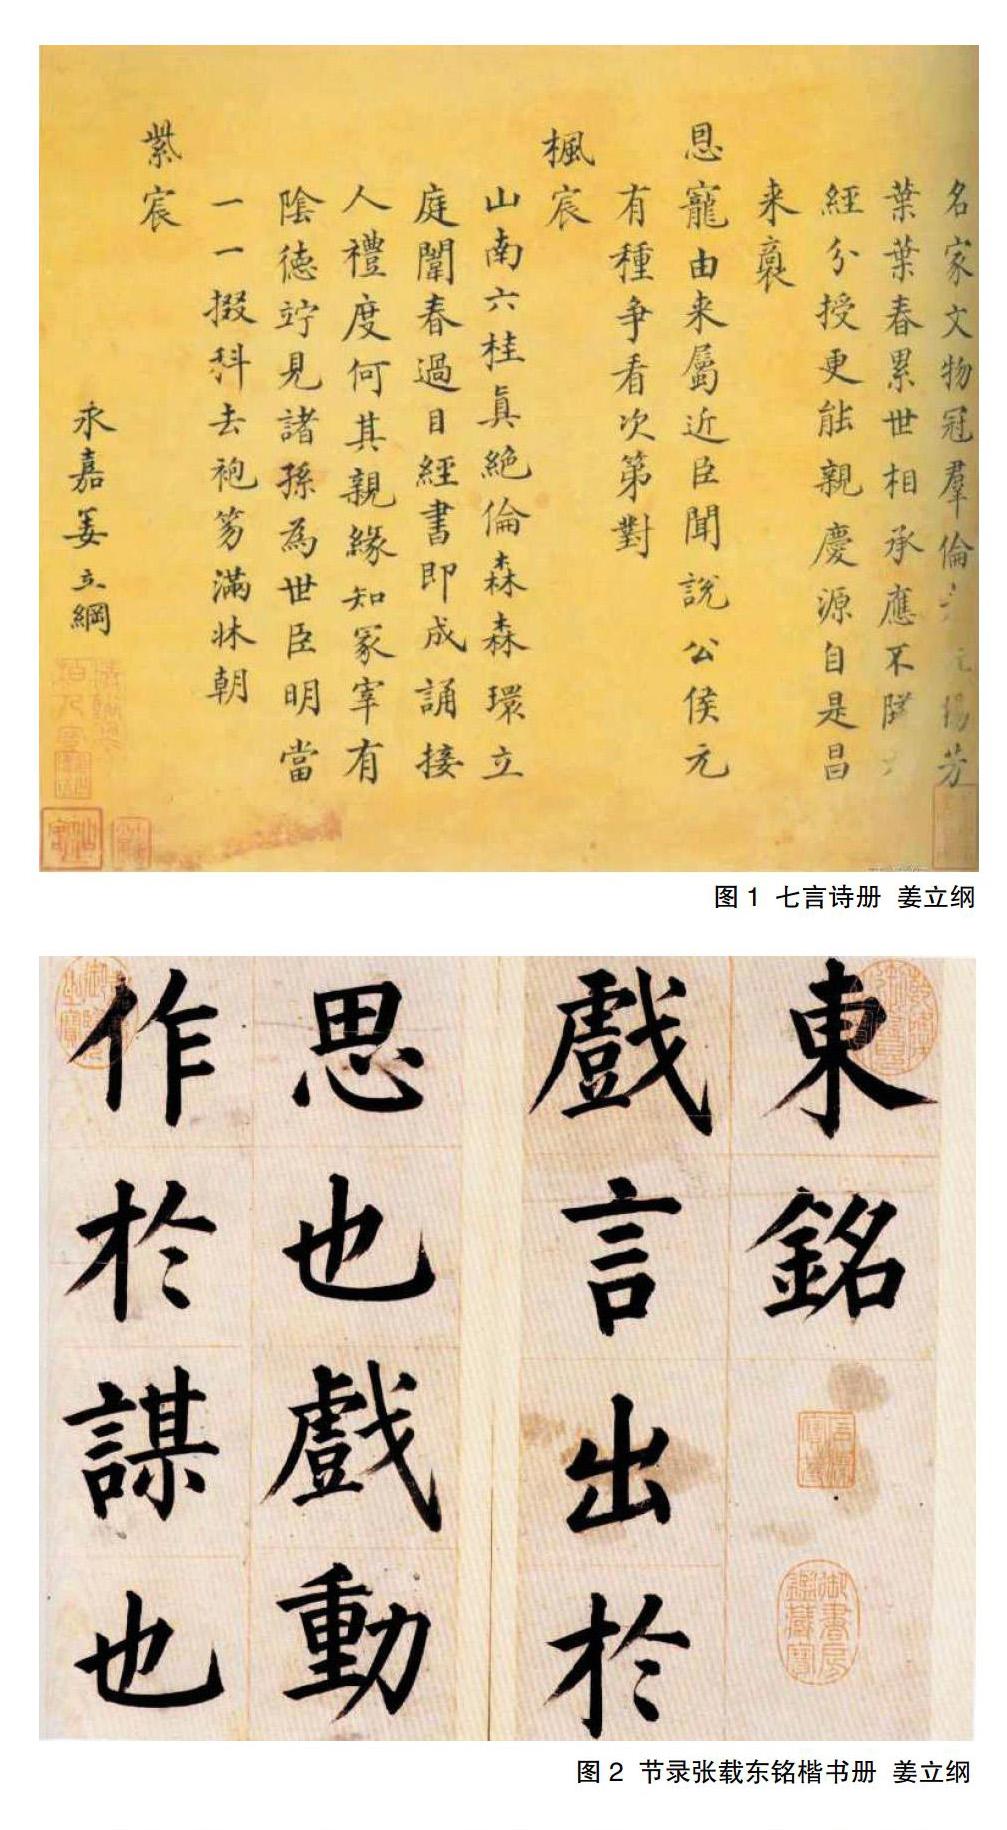 名家文物冠羣倫芳
葉葉春累世相承應不
經分授更能親慶源自是昌
来裔
恩寵由来屬近臣聞説公侯元
有種争看次第對
楓宸
山南六桂眞絶倫森森環立
庭闈春過目經書即成誦接
人禮度何其親緣知冢宰有
陰德竚見諸孫為世臣明當
一一掇科去袍笏滿牀朝
紫宸
永嘉姜立綱
图1 七言诗册 姜立纲
東銘
御書房鑑藏寶
戲言出於
思也戲動
作於謀也
图2 节录张载东铭楷书册 姜立纲